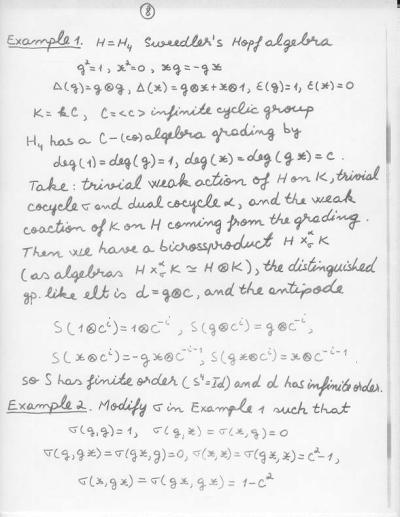 ⑧
Example 1. H=H₄ Sweedler's Hopf algebra
g²=1, x²=0, xg=-gx
Δ(g)=g⊗g, Δ(x)=g⊗x+x⊗1, ε(g)=1, ε(x)=0
K=kC, C=<c> infinite cyclic group
H₄ has a C-(co)algebra grading by
deg(1)=deg(g)=1, deg(x)=deg(gx)=c.
Take: trivial weak action of H on K, trivial
cocycle σ and dual cocycle α, and the weak
coaction of K on H coming from the grading.
Then we have a bicrossproduct H ×^α_σ K
(as algebras H ×^α_σ K ≃ H⊗K), the distinguished
gp. like elt is d=g⊗c, and the antipode
S(1⊗cⁱ)=1⊗c⁻ⁱ, S(g⊗cⁱ)=g⊗c⁻ⁱ,
S(x⊗cⁱ)=-gx⊗c⁻ⁱ⁻¹, S(gx⊗cⁱ)=x⊗c⁻ⁱ⁻¹.
so S has finite order (S⁴=Id) and d has infinite order.
Example 2. Modify σ in Example 1 such that
σ(g,g)=1, σ(g,x)=σ(x,g)=0
σ(g,gx)=σ(gx,g)=0, σ(x,x)=σ(gx,x)=c²-1,
σ(x,gx)=σ(gx,gx)=1-c²